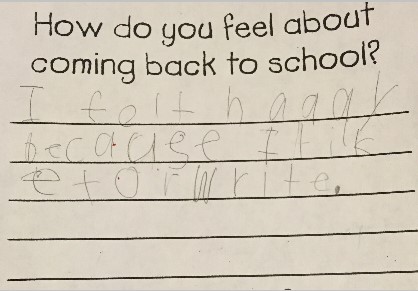 How do you feel about
coming back to school?
I felt haqqy
because I lik
e to rwrite.